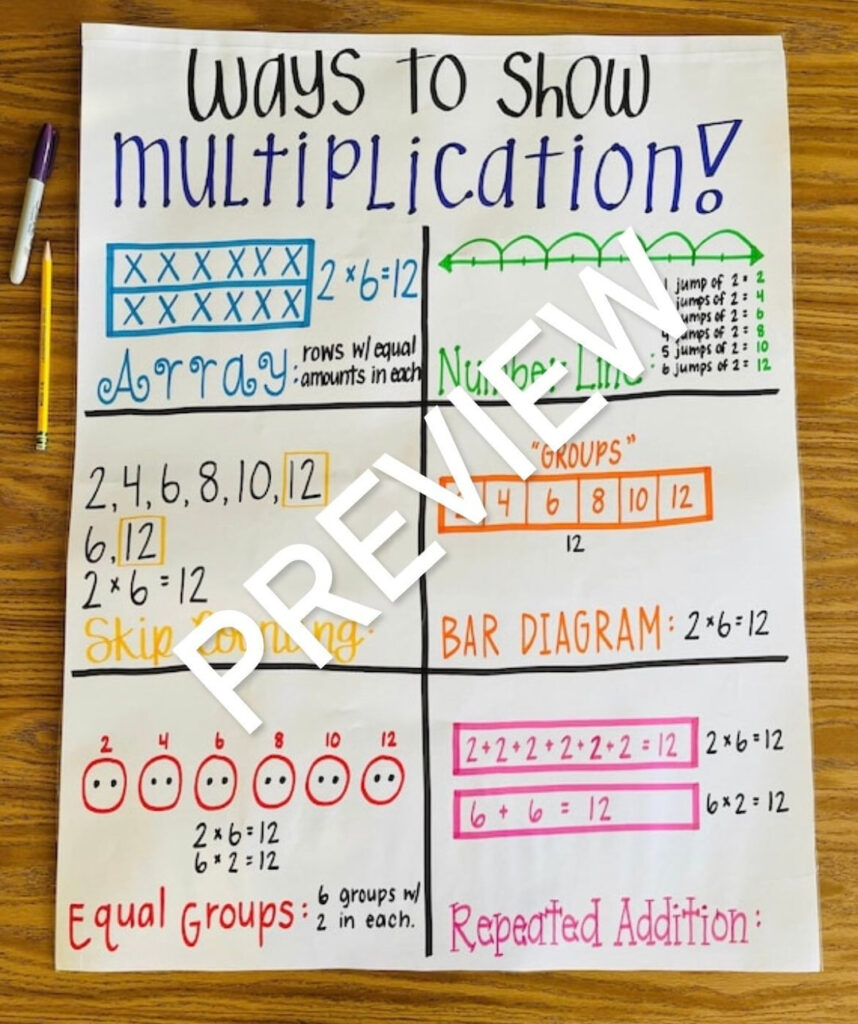 Ways to Show
Multiplication!
X X X X X X
X X X X X X
2×6=12
Array: rows w/ equal
amounts in each
jump of 2= 2
jumps of 2= 4
jumps of 2= 6
4 jumps of 2= 8
5 jumps of 2= 10
6 jumps of 2= 12
Number Line:
2,4,6,8,10,12
6,12
2×6=12
Skip Counting:
"GROUPS"
4 6 8 10 12
12
BAR DIAGRAM: 2×6=12
2 4 6 8 10 12
2×6=12
6×2=12
Equal Groups: 6 groups w/
2 in each.
2+2+2+2+2+2=12 2×6=12
6+6=12 6×2=12
Repeated Addition:
PREVIEW